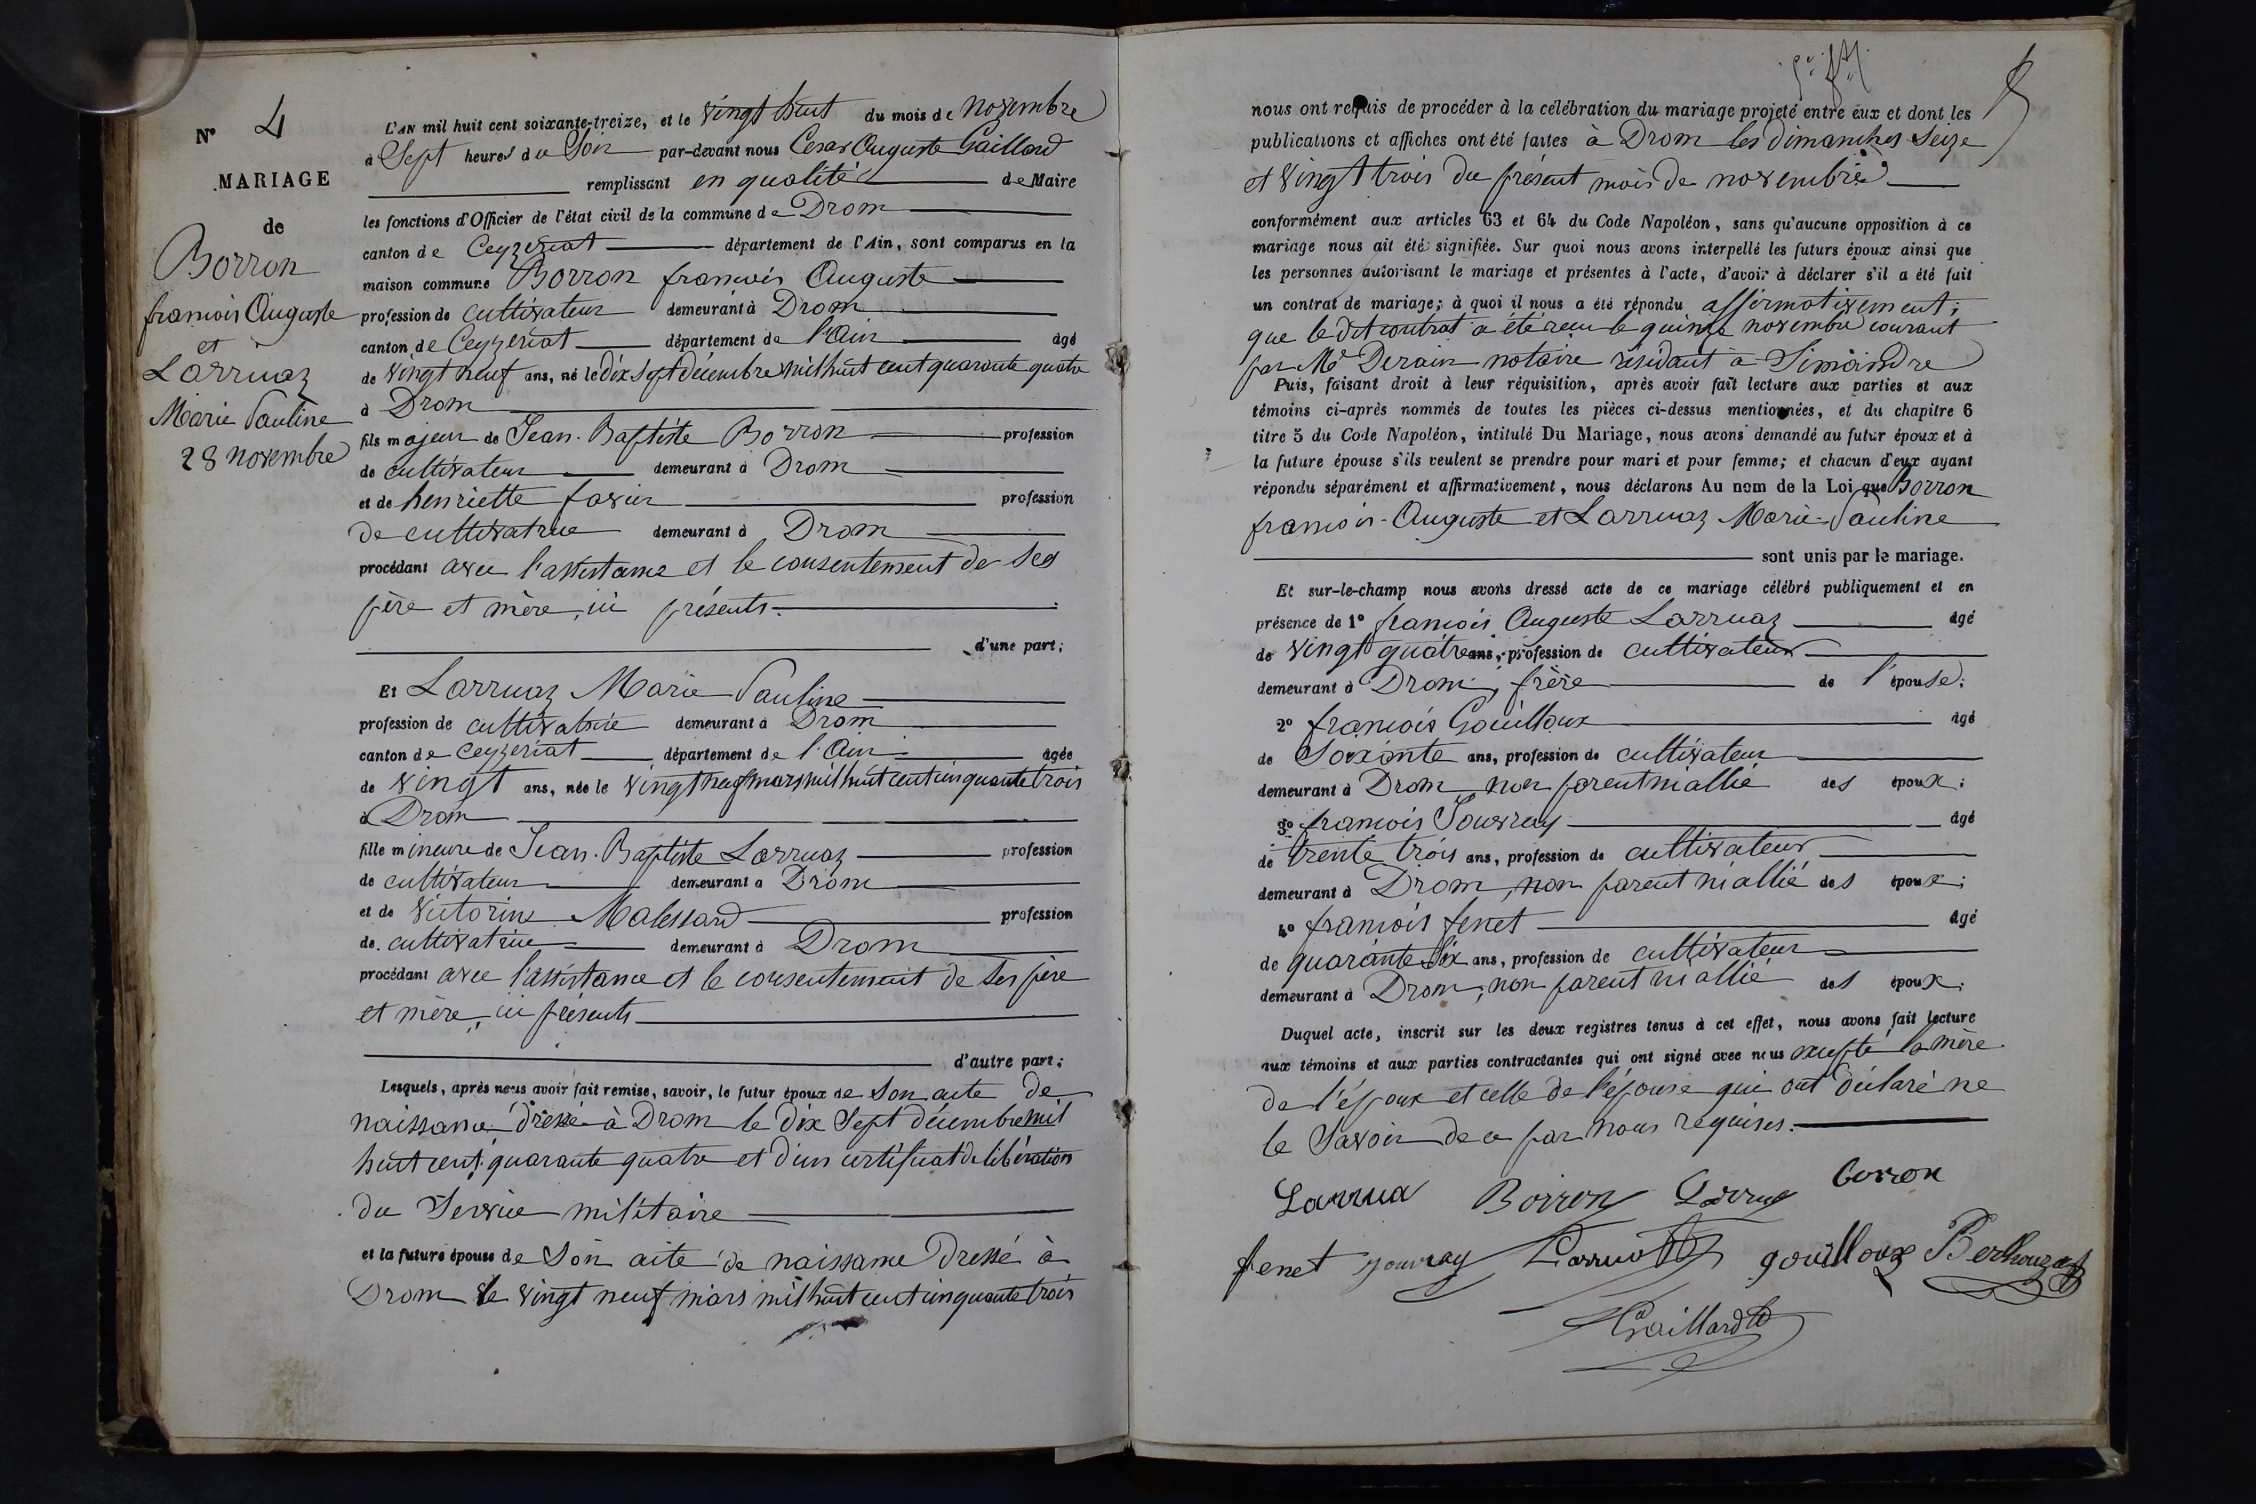 N° 4
MARIAGE
de
Borron
francois Auguste
et
Larruaz
Marie Pauline
28 novembre
L'AN mil huit cent soixante-treize, et le vingt huit du mois de novembre
à Sept heures du Soir par-devant nous Cesar Auguste Gaillard
remplissant en qualité de Maire
les fonctions d'Officier de l'état civil de la commune de Drom
canton de Ceyzeriat département de l'Ain, sont comparus en la
maison commune Borron francois Auguste
profession de cultivateur demeurant à Drom
canton de Ceyzeriat département de l'Ain âgé
de vingt neuf ans, né le dix Sept décembre mil huit cent quarante quatre
à Drom
fils majeur de Jean-Baptiste Borron profession
de cultivateur demeurant à Drom
et de henriette favier profession
de cultivatrice demeurant à Drom
procédant avec l'assistance et le consentement de ses
père et mère, ici présents.
d'une part;
Et Larruaz Marie Pauline
profession de cultivatrice demeurant à Drom
canton de Ceyzeriat département de l'Ain âgée
de vingt ans, née le vingt neuf mars mil huit cent cinquante trois
à Drom
fille mineure de Jean-Baptiste Larruaz profession
de cultivateur demeurant à Drom
et de Victorine Malessard profession
de cultivatrice demeurant à Drom
procédant avec l'assistance et le consentement de ses père
et mère, ici présents
d'autre part;
Lesquels, après nous avoir fait remise, savoir, le futur époux de Son acte de
naissance dressé à Drom le dix Sept décembre mil
huit cent quarante quatre et d'un certificat de libération
du Service militaire
et la future épouse de Son acte de naissance dressé à
Drom le vingt neuf mars mil huit cent cinquante trois
nous ont requis de procéder à la célébration du mariage projeté entre eux et dont les
publications et affiches ont été faites à Drom les dimanches Seize
et vingt trois du présent mois de novembre
conformément aux articles 63 et 64 du Code Napoléon, sans qu'aucune opposition à ce
mariage nous ait été signifiée. Sur quoi nous avons interpellé les futurs époux ainsi que
les personnes autorisant le mariage et présentes à l'acte, d'avoir à déclarer s'il a été fait
un contrat de mariage; à quoi il nous a été répondu affirmativement;
que le dit contrat a été reçu le quinze novembre courant
par Me Derain notaire résidant à Simandre
Puis, faisant droit à leur réquisition, après avoir fait lecture aux parties et aux
témoins ci-après nommés de toutes les pièces ci-dessus mentionnées, et du chapitre 6
titre 5 du Code Napoléon, intitulé Du Mariage, nous avons demandé au futur époux et à
la future épouse s'ils veulent se prendre pour mari et pour femme; et chacun d'eux ayant
répondu séparément et affirmativement, nous déclarons Au nom de la Loi que Borron
francois-Auguste et Larruaz Marie-Pauline
sont unis par le mariage.
Et sur-le-champ nous avons dressé acte de ce mariage célébré publiquement et en
présence de 1° francois Auguste Larruaz âgé
de vingt quatre ans, profession de cultivateur
demeurant à Drom, frère de l'épouse;
2° francois Gouilloux âgé
de Soixante ans, profession de cultivateur
demeurant à Drom non parent ni allié des époux;
3° francois Jouvray âgé
de trente trois ans, profession de cultivateur
demeurant à Drom, non parent ni allié des époux;
4° francois fenet âgé
de quarante six ans, profession de cultivateur
demeurant à Drom, non parent ni allié des époux.
Duquel acte, inscrit sur les deux registres tenus à cet effet, nous avons fait lecture
aux témoins et aux parties contractantes qui ont signé avec nous excepté la mère
de l'époux et celle de l'épouse qui ont déclaré ne
le Savoir de ce par nous requises.
Larrua Borron Larruaz Borron
fenet Jouvray Larruaz gouilloux Berthouzat
Gaillard